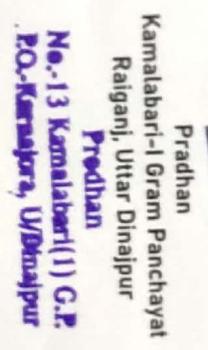 Pradhan
Kamalabari-I Gram Panchayat
Raiganj, Uttar Dinajpur
Pradhan
No.-13 Kamalabari(1) G.P.
P.O.-Karnajora, U/Dinajpur